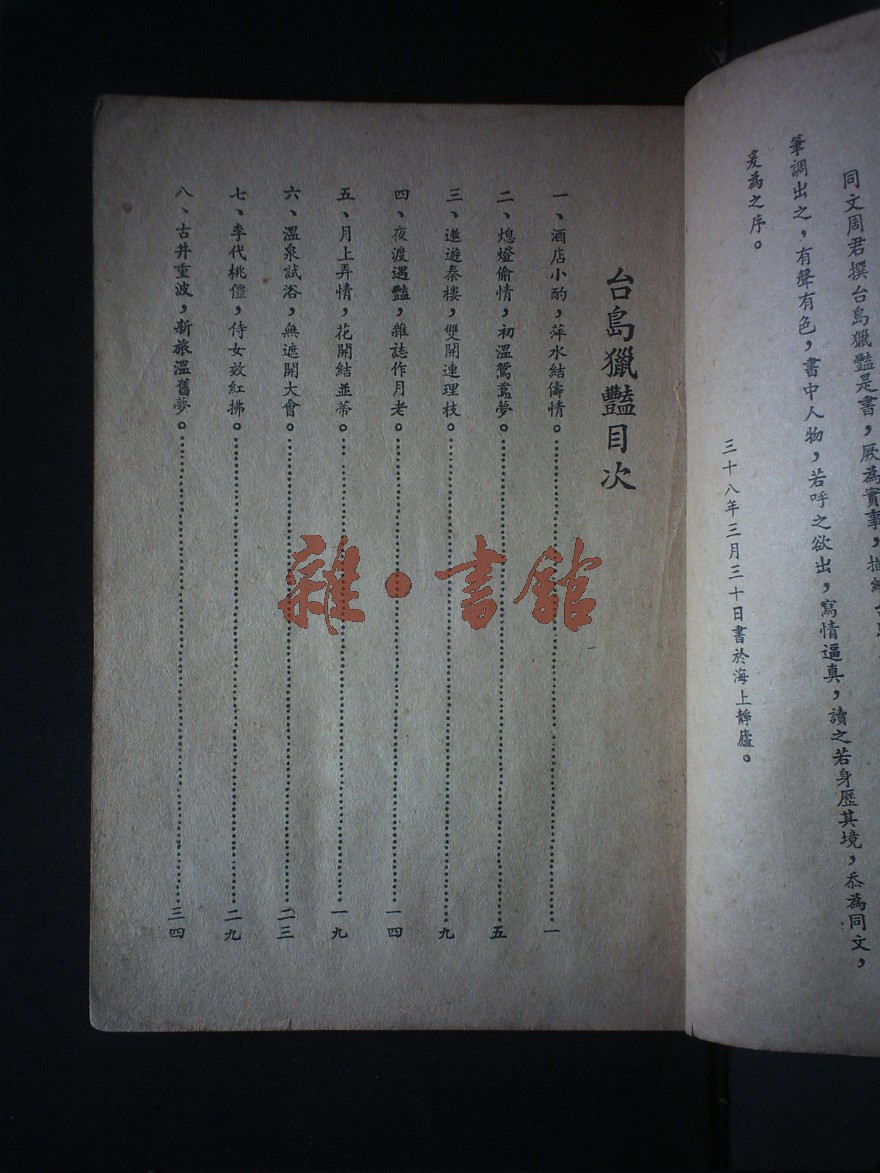 同文周君撰台島獵豔是書，厥為實事，描
筆調出之，有聲有色，書中人物，若呼之欲出，寫情逼真，讀之若身歷其境，忝為同文，
爰為之序。
三十八年三月三十日書於海上靜廬。
台島獵豔目次
一、酒店小酌，萍水結儔情。…………一
二、熄燈偷情，初溫鴛鴦夢。…………五
三、遨遊秦樓，雙開連理枝。…………九
四、夜渡遇豔，雜誌作月老。…………一四
五、月上弄情，花開結並蒂。…………一九
六、溫泉試浴，無遮開大會。…………二三
七、李代桃僵，侍女效紅拂。…………二九
八、古井重波，新旅溫舊夢。…………三四
雜·書館